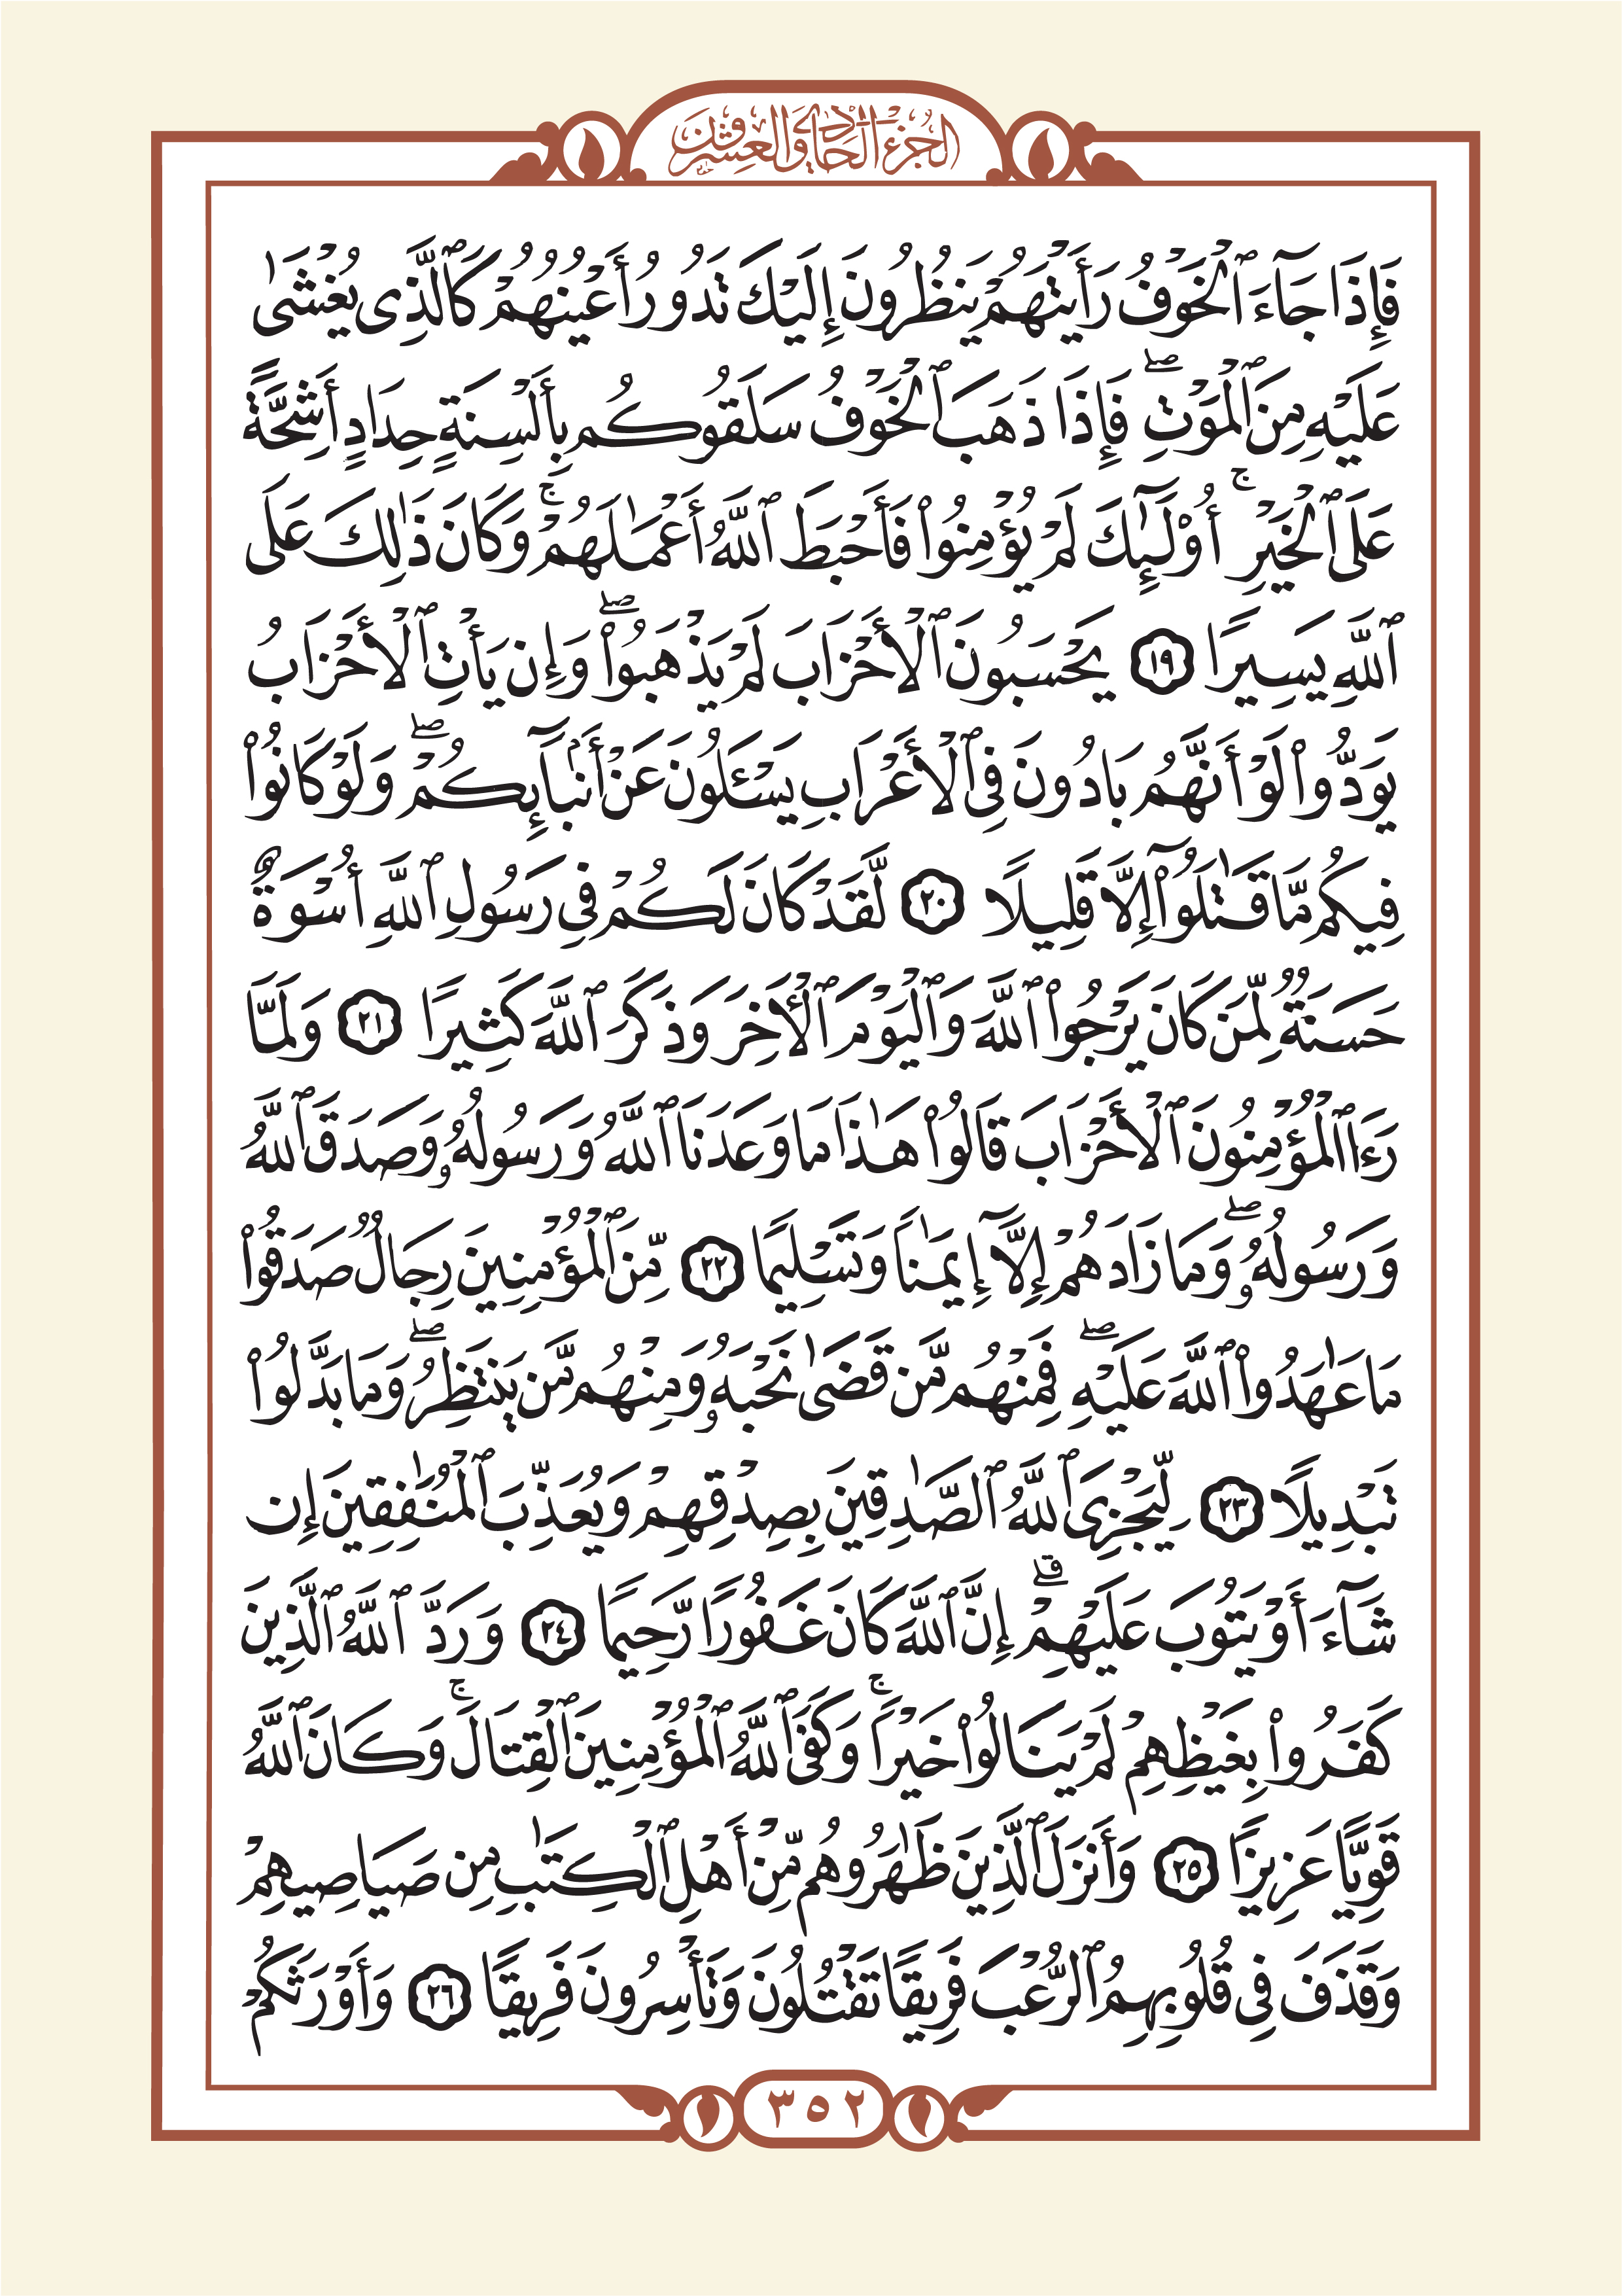 الجُزْءُ الحَادِي وَالعِشْرُونَ
فَإِذَا جَآءَ ٱلْخَوْفُ رَأَيْتَهُمْ يَنظُرُونَ إِلَيْكَ تَدُورُ أَعْيُنُهُمْ كَٱلَّذِى يُغْشَىٰ
عَلَيْهِ مِنَ ٱلْمَوْتِ ۖ فَإِذَا ذَهَبَ ٱلْخَوْفُ سَلَقُوكُم بِأَلْسِنَةٍ حِدَادٍ أَشِحَّةً
عَلَى ٱلْخَيْرِ ۚ أُو۟لَٰٓئِكَ لَمْ يُؤْمِنُوا۟ فَأَحْبَطَ ٱللَّهُ أَعْمَٰلَهُمْ ۚ وَكَانَ ذَٰلِكَ عَلَى
ٱللَّهِ يَسِيرًا ١٩ يَحْسَبُونَ ٱلْأَحْزَابَ لَمْ يَذْهَبُوا۟ ۖ وَإِن يَأْتِ ٱلْأَحْزَابُ
يَوَدُّوا۟ لَوْ أَنَّهُم بَادُونَ فِى ٱلْأَعْرَابِ يَسْـَٔلُونَ عَنْ أَنۢبَآئِكُمْ ۖ وَلَوْ كَانُوا۟
فِيكُم مَّا قَٰتَلُوٓا۟ إِلَّا قَلِيلًا ٢٠ لَّقَدْ كَانَ لَكُمْ فِى رَسُولِ ٱللَّهِ أُسْوَةٌ
حَسَنَةٌ لِّمَن كَانَ يَرْجُوا۟ ٱللَّهَ وَٱلْيَوْمَ ٱلْـَٔاخِرَ وَذَكَرَ ٱللَّهَ كَثِيرًا ٢١ وَلَمَّا
رَءَا ٱلْمُؤْمِنُونَ ٱلْأَحْزَابَ قَالُوا۟ هَٰذَا مَا وَعَدَنَا ٱللَّهُ وَرَسُولُهُۥ وَصَدَقَ ٱللَّهُ
وَرَسُولُهُۥ ۖ وَمَا زَادَهُمْ إِلَّآ إِيمَٰنًا وَتَسْلِيمًا ٢٢ مِّنَ ٱلْمُؤْمِنِينَ رِجَالٌ صَدَقُوا۟
مَا عَٰهَدُوا۟ ٱللَّهَ عَلَيْهِ ۖ فَمِنْهُم مَّن قَضَىٰ نَحْبَهُۥ وَمِنْهُم مَّن يَنتَظِرُ ۖ وَمَا بَدَّلُوا۟
تَبْدِيلًا ٢٣ لِّيَجْزِىَ ٱللَّهُ ٱلصَّٰدِقِينَ بِصِدْقِهِمْ وَيُعَذِّبَ ٱلْمُنَٰفِقِينَ إِن
شَآءَ أَوْ يَتُوبَ عَلَيْهِمْ ۗ إِنَّ ٱللَّهَ كَانَ غَفُورًا رَّحِيمًا ٢٤ وَرَدَّ ٱللَّهُ ٱلَّذِينَ
كَفَرُوا۟ بِغَيْظِهِمْ لَمْ يَنَالُوا۟ خَيْرًا ۚ وَكَفَى ٱللَّهُ ٱلْمُؤْمِنِينَ ٱلْقِتَالَ ۚ وَكَانَ ٱللَّهُ
قَوِيًّا عَزِيزًا ٢٥ وَأَنزَلَ ٱلَّذِينَ ظَٰهَرُوهُم مِّنْ أَهْلِ ٱلْكِتَٰبِ مِن صَيَاصِيهِمْ
وَقَذَفَ فِى قُلُوبِهِمُ ٱلرُّعْبَ فَرِيقًا تَقْتُلُونَ وَتَأْسِرُونَ فَرِيقًا ٢٦ وَأَوْرَثَكُمْ
٣٥٢